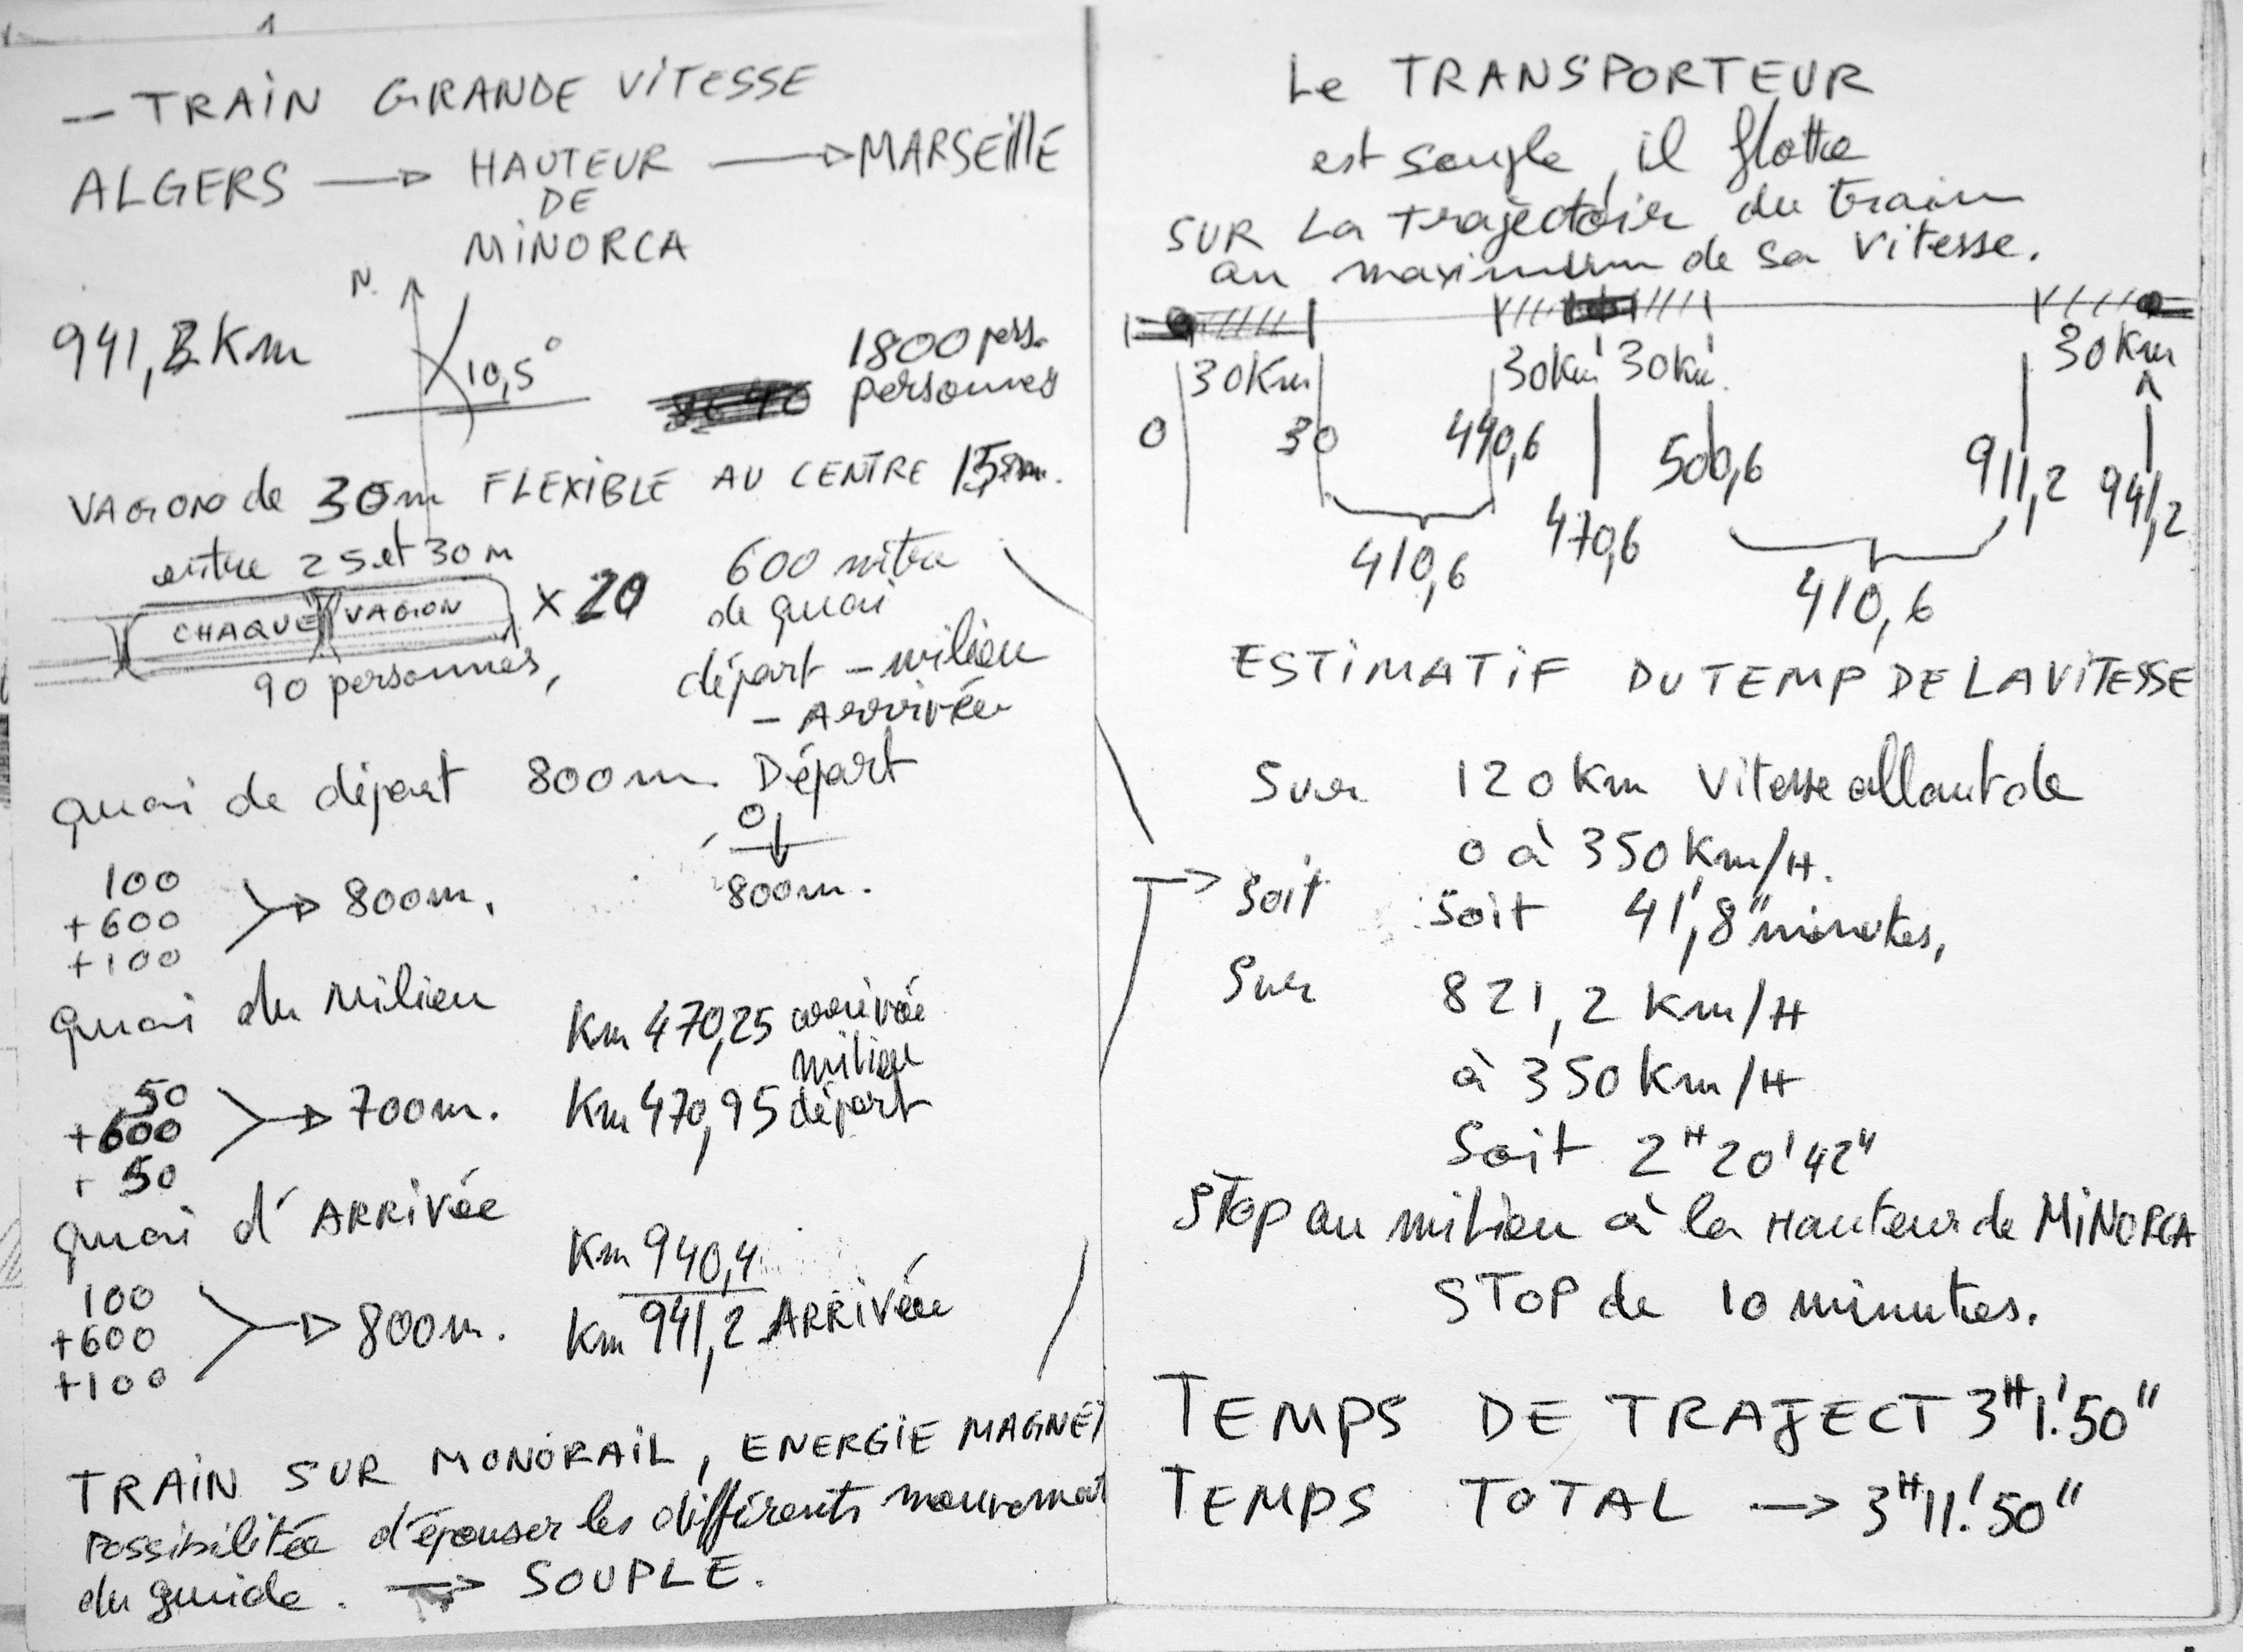 1
– TRAIN GRANDE VITESSE
ALGERS → HAUTEUR → MARSEILLE
DE
MINORCA
N.
941,2 Km
10,5°
1800 pers.
personnes
VAGON de 30m FLEXIBLE AU CENTRE 15m.
entre 25 et 30 M
CHAQUE VAGON
× 20
90 personnes,
600 mètre
de quai
départ – milieu
– Arrivée
quai de départ 800m. Départ
0
800m.
100
+600
+100
→ 800m.
quai du milieu
Km 470,25 arrivée
milieu
Km 470,95 départ
50
+600
+ 50
→ 700m.
quai d'ARRivée
Km 940,4
Km 941,2 ARRIVée
100
+600
+100
→ 800m.
TRAIN SUR MONORAIL, ENERGIE MAGNET
Possibilitée d'épouser les différents mouvemant
du guide. → SOUPLE.
Le TRANSPORTEUR
est souple, il flotte
SUR La trajectoir du train
au maximum de sa vitesse.
30Km 30Km 30Km 30Km
0 30 440,6 500,6 911,2 941,2
470,6
410,6 410,6
ESTIMATIF DU TEMP DE LA VITESSE
Sur 120 Km Vitesse allant de
0 à 350 Km/H.
→ Soit Soit 41',8" minutes,
Sur 821,2 Km/H
à 350 Km/H
Soit 2H 20' 42"
STOP au milieu à la Hauteur de MINORCA
STOP de 10 minutes.
TEMPS DE TRAJECT 3H 1!50"
TEMPS TOTAL → 3H 11!50"